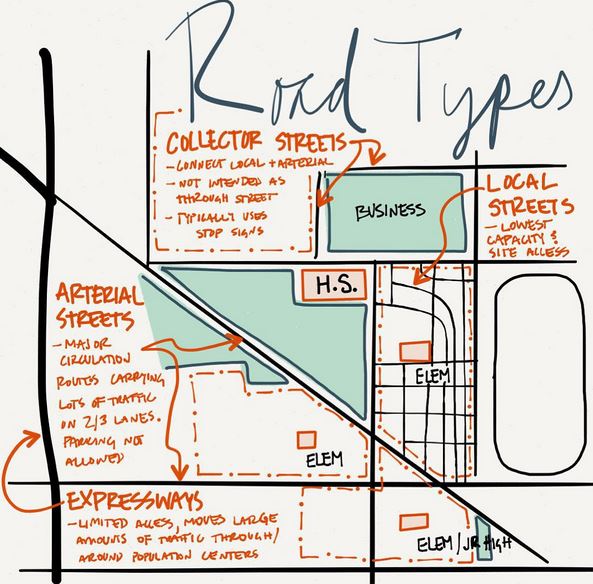 Road Types
COLLECTOR STREETS
- CONNECT LOCAL + ARTERIAL
- NOT INTENDED AS
THROUGH STREET
- TYPICALLY USES
STOP SIGNS
BUSINESS
LOCAL
STREETS
- LOWEST
CAPACITY &
SITE ACCESS
H.S.
ARTERIAL
STREETS
- MAJOR
CIRCULATION
ROUTES CARRYING
LOTS OF TRAFFIC
ON 2/3 LANES.
PARKING NOT
ALLOWED
ELEM
ELEM
EXPRESSWAYS
- LIMITED ACCESS, MOVES LARGE
AMOUNTS OF TRAFFIC THROUGH/
AROUND POPULATION CENTERS
ELEM / JR HIGH